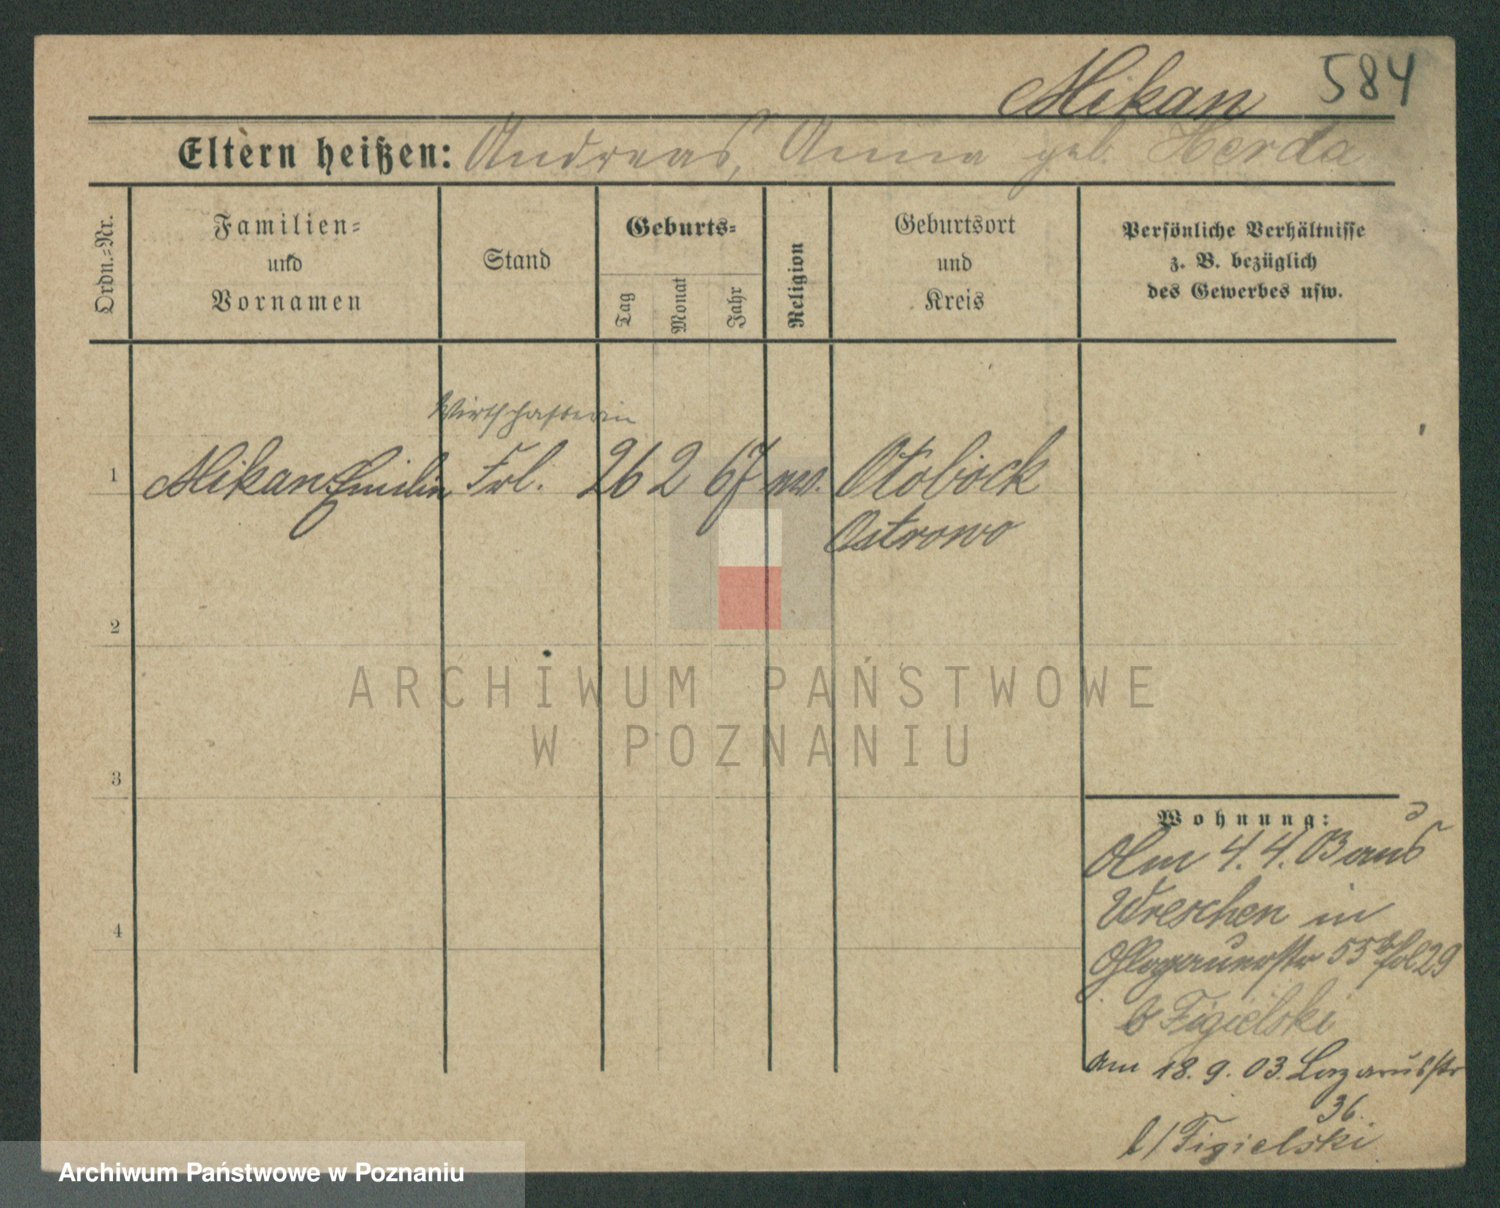 Mikan 584
Eltern heißen: Andreas, Anna geb. Herda
Ordn.-Nr.
Familien-
und
Vornamen
Stand
Geburts-
Tag
Monat
Jahr
Religion
Geburtsort
und
Kreis
Persönliche Verhältnisse
z. B. bezüglich
des Gewerbes usw.
Wirthschafterin
1 Mikan Emilie Frl. 26 2 67 Otobock
Ostrowo
2
3
4
ARCHIWUM PAŃSTWOWE
W POZNANIU
Wohnung:
Am 4. 4. 03 aus
Wreschen in
Glogauerstr 55 29
b Figielski
am 18. 9. 03. Lazarusstr
36.
b/Figielski
Archiwum Państwowe w Poznaniu